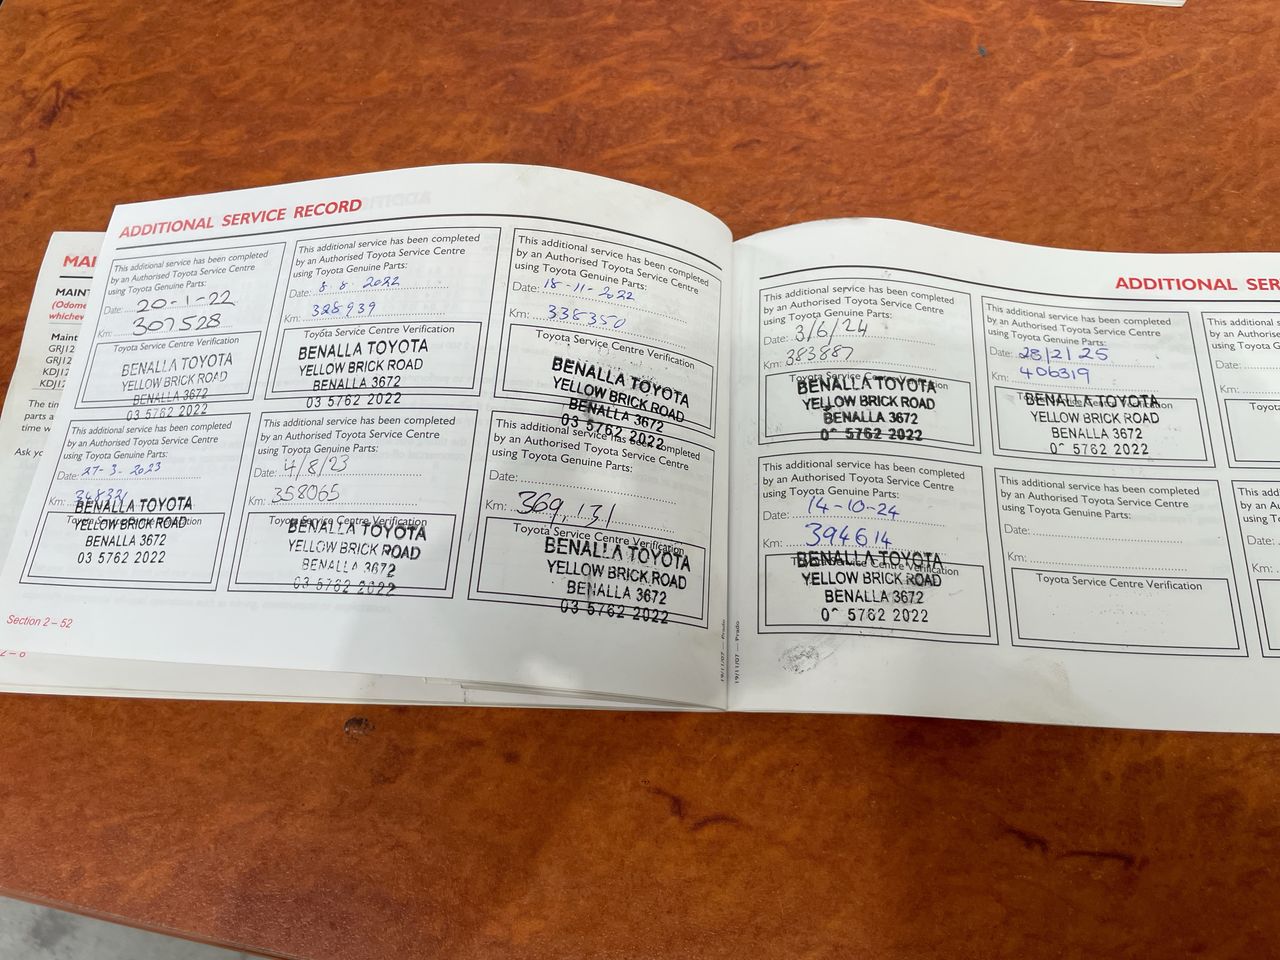 ADDITIONAL SERVICE RECORD
This additional service has been completed
by an Authorised Toyota Service Centre
using Toyota Genuine Parts:
Date: 20-1-22
Km: 307528
Toyota Service Centre Verification
BENALLA TOYOTA
YELLOW BRICK ROAD
BENALLA 3672
03 5762 2022
This additional service has been completed
by an Authorised Toyota Service Centre
using Toyota Genuine Parts:
Date: 8. 8. 2022
Km: 328939
Toyota Service Centre Verification
BENALLA TOYOTA
YELLOW BRICK ROAD
BENALLA 3672
03 5762 2022
This additional service has been completed
by an Authorised Toyota Service Centre
using Toyota Genuine Parts:
Date: 18-11-2022
Km: 338350
Toyota Service Centre Verification
BENALLA TOYOTA
YELLOW BRICK ROAD
BENALLA 3672
03 5762 2022
This additional service has been completed
by an Authorised Toyota Service Centre
using Toyota Genuine Parts:
Date: 27-3-2023
Km:
BENALLA TOYOTA
YELLOW BRICK ROAD
BENALLA 3672
03 5762 2022
This additional service has been completed
by an Authorised Toyota Service Centre
using Toyota Genuine Parts:
Date: 4/8/23
Km: 358065
Toyota Service Centre Verification
BENALLA TOYOTA
YELLOW BRICK ROAD
BENALLA 3672
03 5762 2022
This additional service has been completed
by an Authorised Toyota Service Centre
using Toyota Genuine Parts:
Date:
Km: 369,131
Toyota Service Centre Verification
BENALLA TOYOTA
YELLOW BRICK ROAD
BENALLA 3672
03 5762 2022
Section 2 – 52
19/11/07 — Prado
MAI
MAINT
(Odome
whichev
Maint
GRJ12
GRJ12
KDJ12
KDJ12
The tin
parts a
time w
Ask yo
2 – 6
ADDITIONAL SER
This additional service has been completed
by an Authorised Toyota Service Centre
using Toyota Genuine Parts:
Date: 3/6/24
Km: 383887
Toyota Service Centre Verification
BENALLA TOYOTA
YELLOW BRICK ROAD
BENALLA 3672
5762 2022
This additional service has been completed
by an Authorised Toyota Service Centre
using Toyota Genuine Parts:
Date: 28/2/25
Km: 406319
BENALLA TOYOTA
YELLOW BRICK ROAD
BENALLA 3672
5762 2022
This a
by an
using T
Date:
Km:
Toyot
This additional service has been completed
by an Authorised Toyota Service Centre
using Toyota Genuine Parts:
Date: 14-10-24
Km: 394614
Toyota Service Centre Verification
BENALLA TOYOTA
YELLOW BRICK ROAD
BENALLA 3672
5762 2022
This additional service has been completed
by an Authorised Toyota Service Centre
using Toyota Genuine Parts:
Date:
Km:
Toyota Service Centre Verification
This
by an
using
Date:
Km:
19/11/07 — Prado